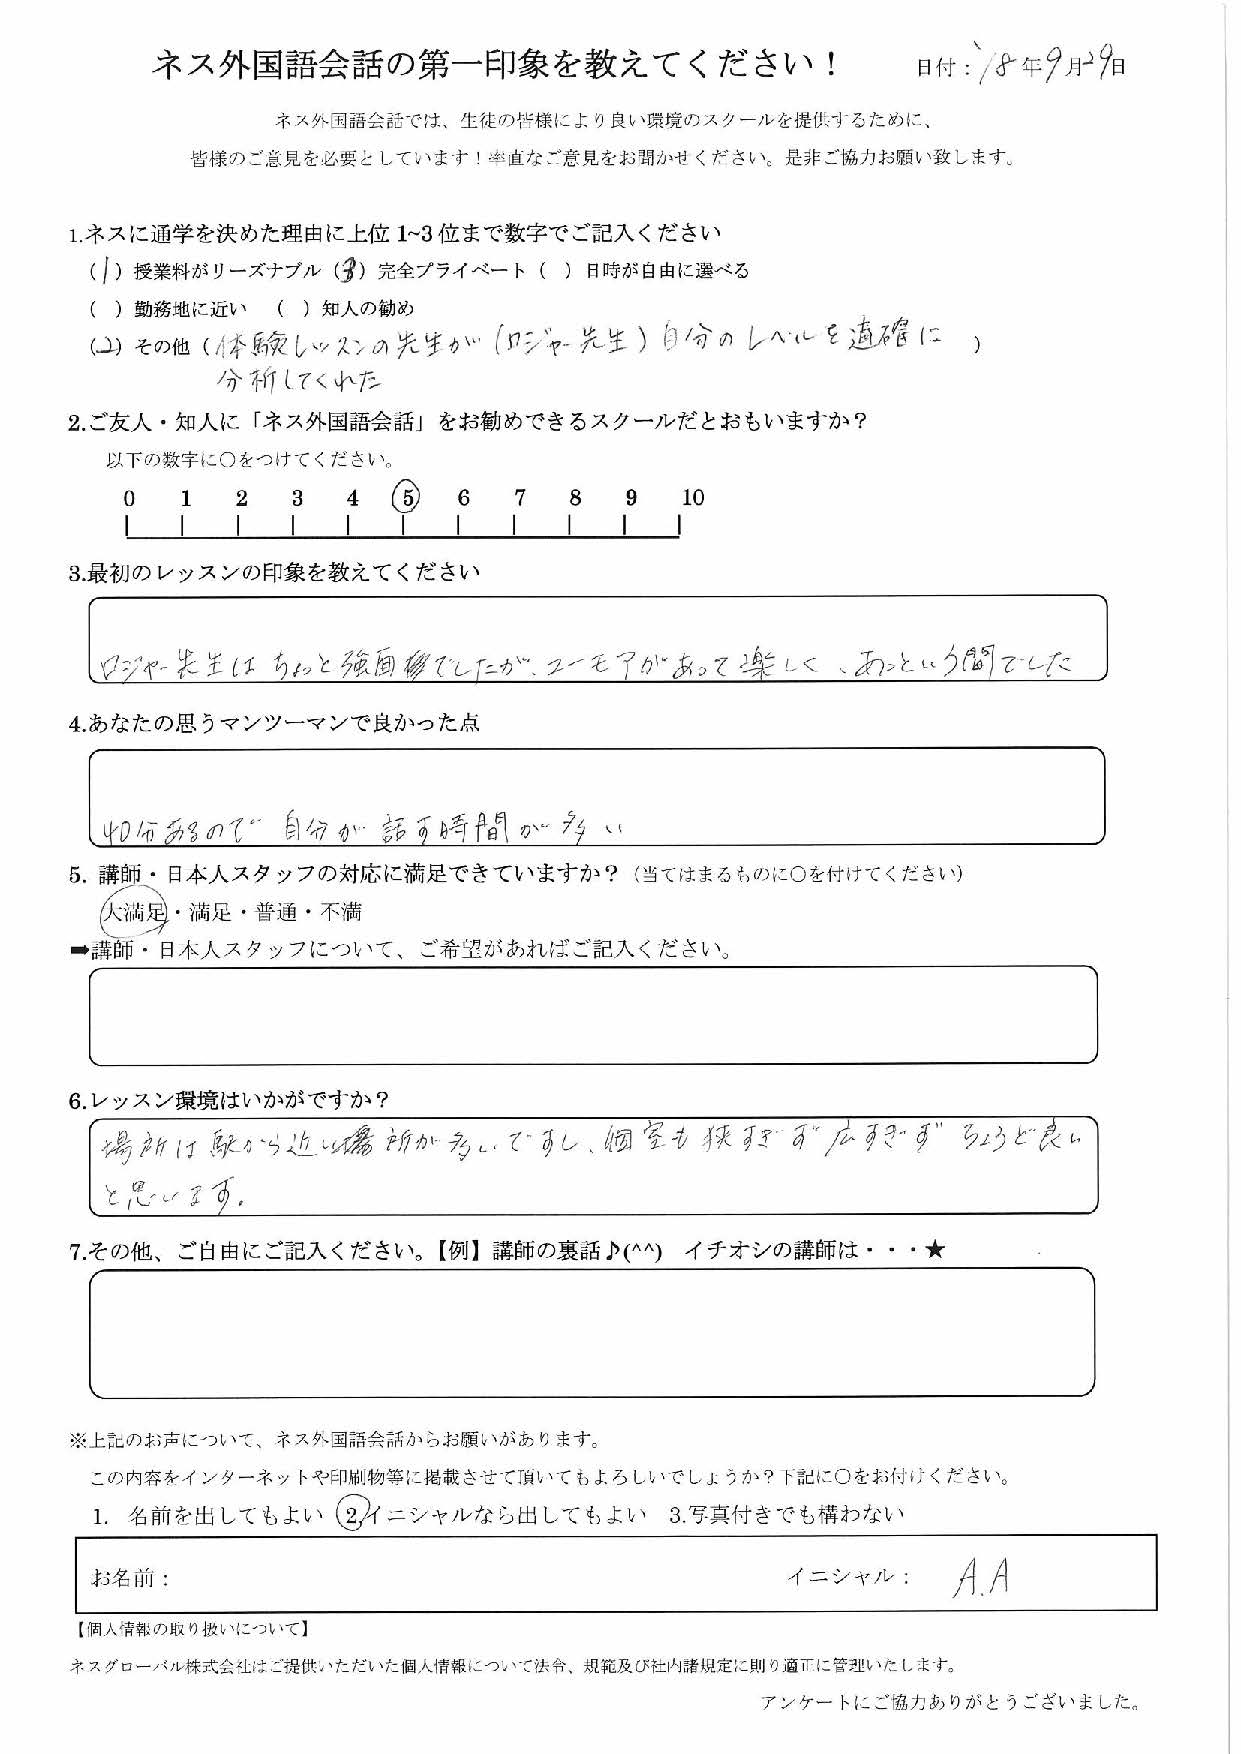 ネス外国語会話の第一印象を教えてください！ 日付：'18年9月29日
ネス外国語会話では、生徒の皆様により良い環境のスクールを提供するために、
皆様のご意見を必要としています！率直なご意見をお聞かせください。是非ご協力お願い致します。
1.ネスに通学を決めた理由に上位1~3位まで数字でご記入ください
（1）授業料がリーズナブル（3）完全プライベート（ ）日時が自由に選べる
（ ）勤務地に近い （ ）知人の勧め
（2）その他（体験レッスンの先生が（ロジャー先生）自分のレベルを適確に ）
分析してくれた
2.ご友人・知人に「ネス外国語会話」をお勧めできるスクールだとおもいますか？
以下の数字に〇をつけてください。
0 1 2 3 4 5 6 7 8 9 10
3.最初のレッスンの印象を教えてください
ロジャー先生はちょっと強面でしたが、ユーモアがあって楽しく、あっという間でした
4.あなたの思うマンツーマンで良かった点
40分あるので自分が話す時間が多い
5. 講師・日本人スタッフの対応に満足できていますか？（当てはまるものに〇を付けてください）
大満足・満足・普通・不満
➡講師・日本人スタッフについて、ご希望があればご記入ください。
6.レッスン環境はいかがですか？
場所は駅から近い場所が多いですし、個室も狭すぎず広すぎずちょうど良い
と思います。
7.その他、ご自由にご記入ください。【例】講師の裏話♪(^^) イチオシの講師は・・・★
※上記のお声について、ネス外国語会話からお願いがあります。
この内容をインターネットや印刷物等に掲載させて頂いてもよろしいでしょうか？下記に〇をお付けください。
1. 名前を出してもよい 2.イニシャルなら出してもよい 3.写真付きでも構わない
お名前： イニシャル： A.A
【個人情報の取り扱いについて】
ネスグローバル株式会社はご提供いただいた個人情報について法令、規範及び社内諸規定に則り適正に管理いたします。
アンケートにご協力ありがとうございました。